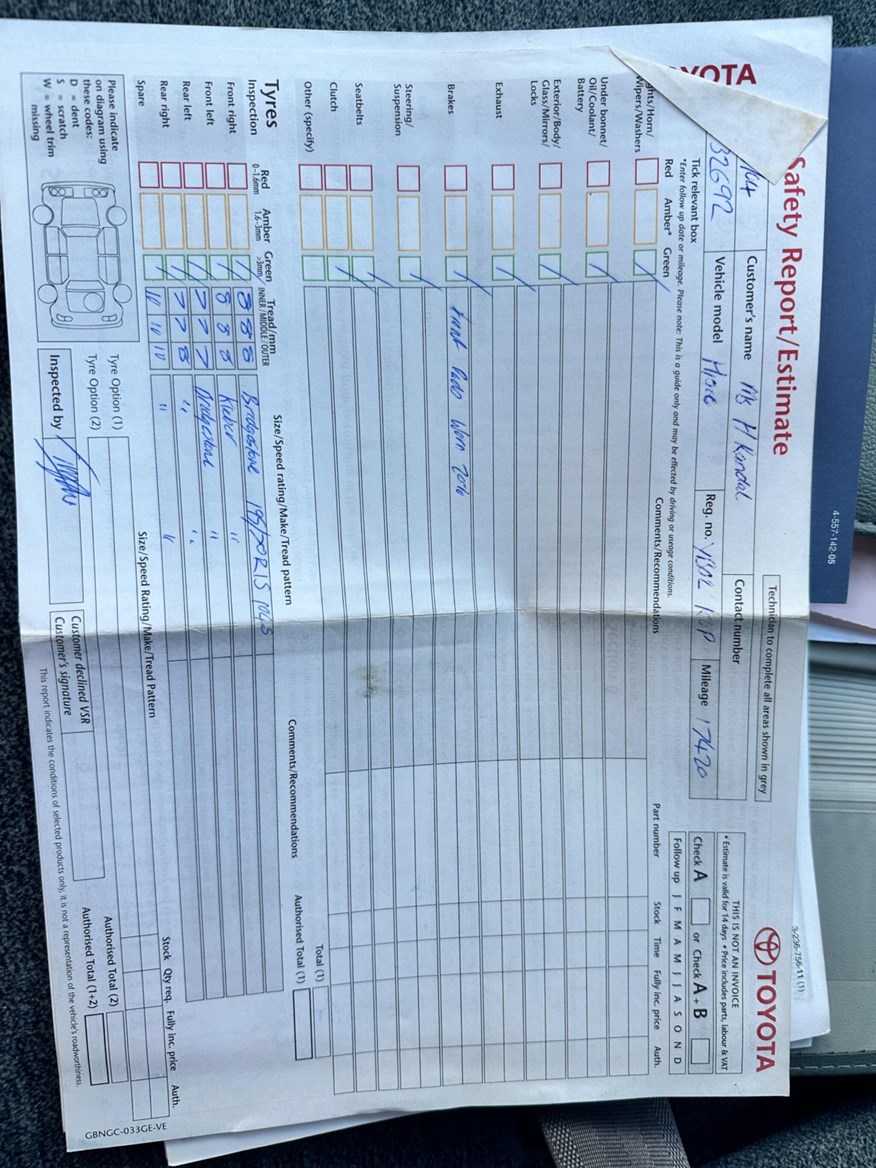 TOYOTA
Safety Report/Estimate
Technician to complete all areas shown in grey
THIS IS NOT AN INVOICE
• Estimate is valid for 14 days • Price includes parts, labour & VAT
TOYOTA
Customer's name
Contact number
32692
Vehicle model
Reg. no.
Mileage 17420
Check A or Check A + B
Tick relevant box
*Enter follow up date or mileage. Please note: This is a guide only and may be effected by driving or useage conditions.
Follow up J F M A M J J A S O N D
Red Amber* Green
Comments/Recommendations
Part number Stock Time Fully inc. price Auth.
ghts/Horn/
Wipers/Washers
Under bonnet/
Oil/Coolant/
Battery
Exterior/Body/
Glass/Mirrors/
Locks
Exhaust
Brakes Front Pads Worn 20%
Steering/
Suspension
Seatbelts
Clutch
Other (specify)
Total (1)
Authorised Total (1)
Tyres
Inspection
Red
0-1.6mm
Amber
1.6-3mm
Green
>3mm
Tread/mm
INNER/MIDDLE/OUTER
Size/Speed rating/Make/Tread pattern
Comments/Recommendations
Stock Qty req. Fully inc. price Auth.
Front right 8 8 8 Bridgestone 195/70R15
Front left 8 8 8 "
Rear left 7 7 7 Bridgestone "
Rear right 7 7 8 " "
Spare 10 10 10 " "
Size/Speed Rating/Make/Tread Pattern
Please indicate
on diagram using
these codes:
D = dent
S = scratch
W = wheel trim
missing
Tyre Option (1)
Tyre Option (2)
Authorised Total (2)
Authorised Total (1+2)
Inspected by
Customer declined VSR
Customer's signature
This report indicates the conditions of selected products only, it is not a representation of the vehicle's roadworthiness.
GBNGC-033GE-VE
4-557-142-05
3-236-756-11 (1)